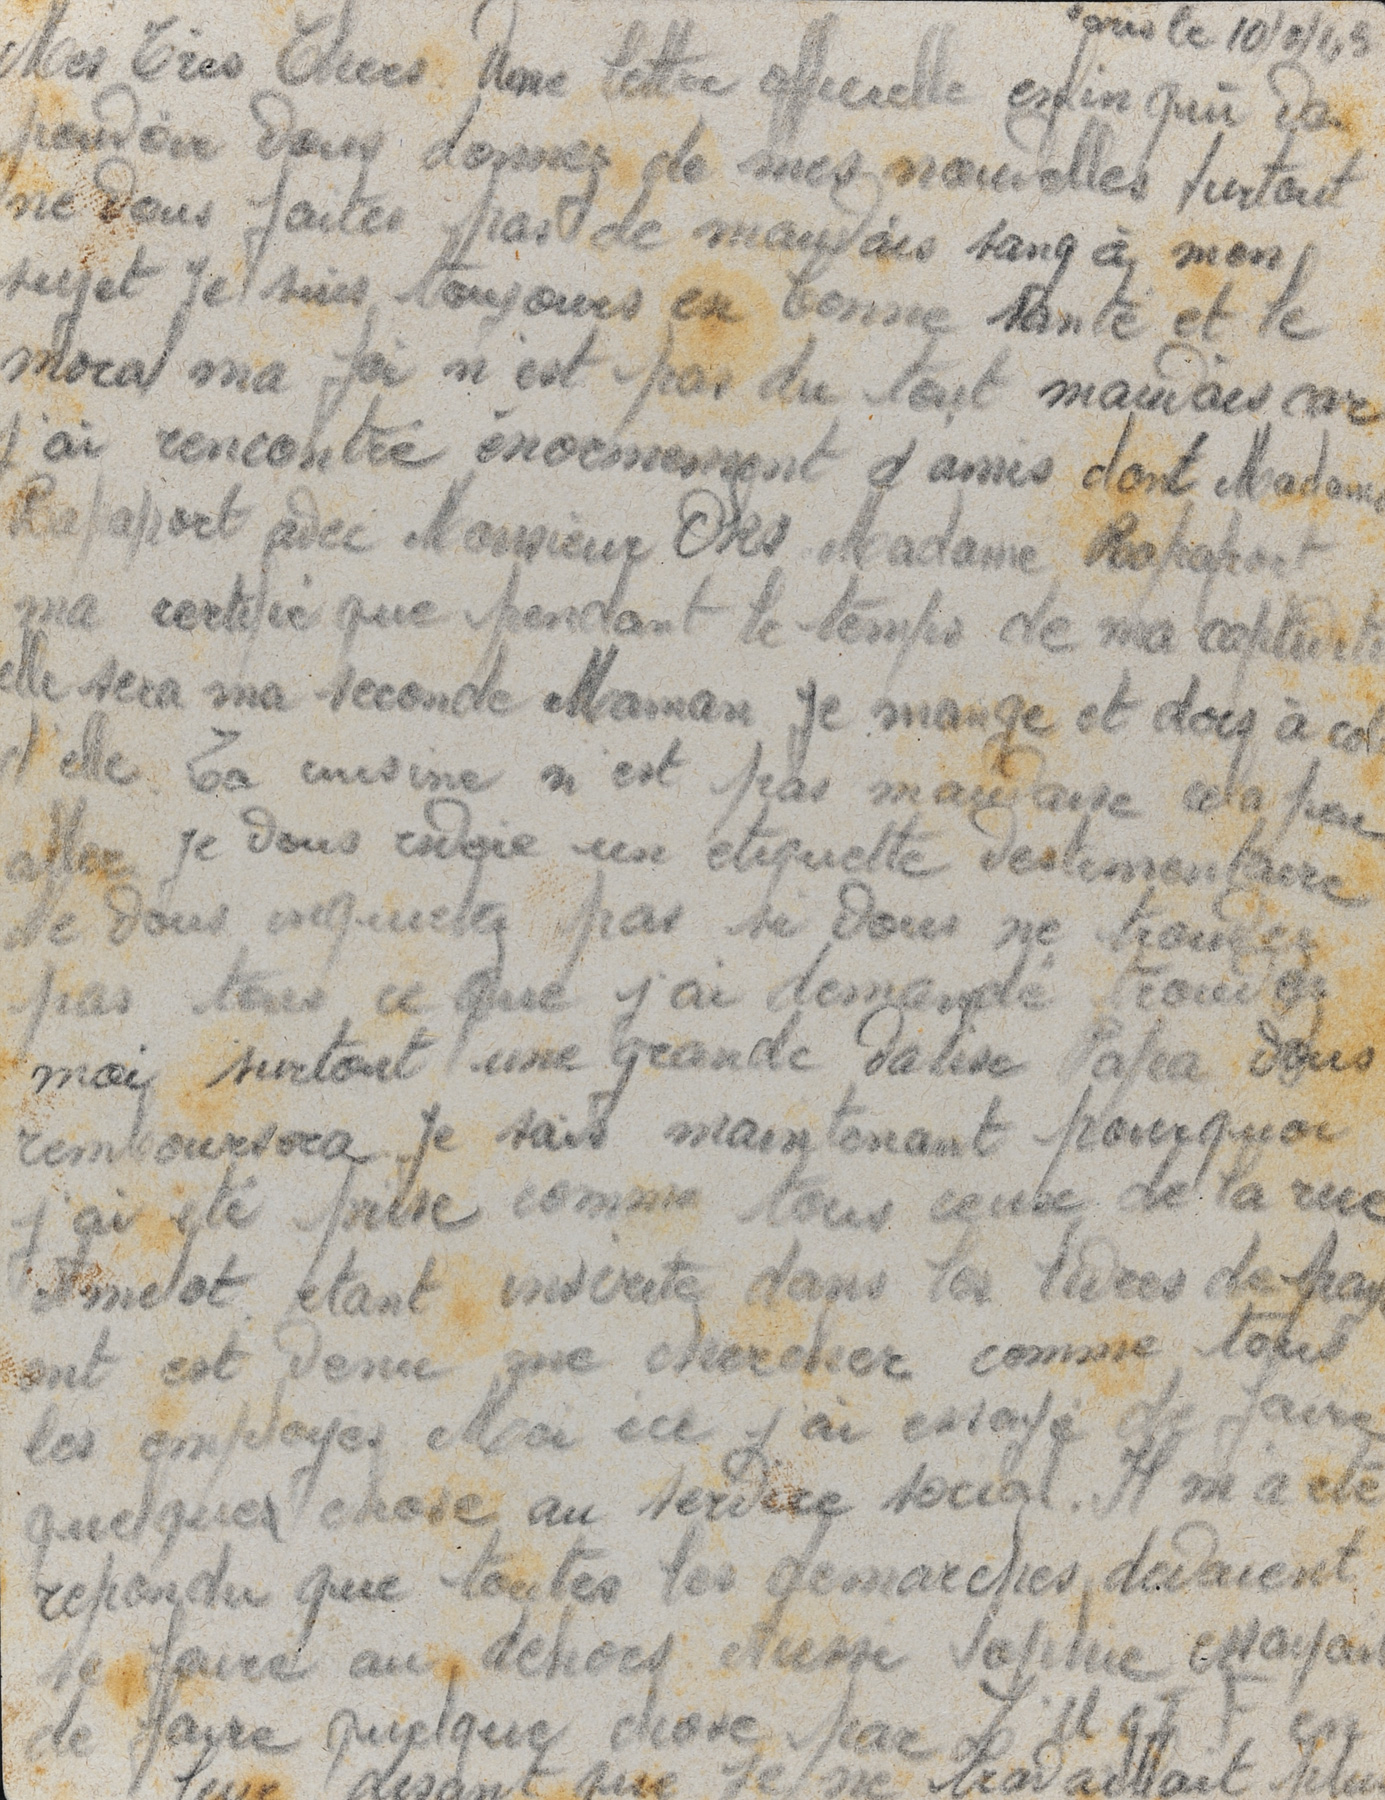 Paris le 10/8/43
Mes Très Chers. Une lettre officielle enfin qui va
pouvoir vous donner de mes nouvelles surtout
ne vous faites pas de mauvais sang à mon
sujet Je suis toujours en bonne santé et le
moral ma foi n'est pas du tout mauvais car
j'ai rencontré énormement d'amis dont Madame
Rapaport avec Monsieur Madame Rapaport
ma certifié que pendant le temps de ma captivité
elle sera ma seconde Maman Je mange et dors à coté
d'elle La cuisine n'est pas mauvaise cela peu
aller Je vous envoie un etiquette vestimentaire
Ne vous inquietez pas si vous ne trouvez
pas tous ce que j'ai demandé trouvez
moi surtout une grande valise Papa vous
remboursera Je sais maintenant pourquoi
j'ai été prise comme tous ceux de la rue
Amelot etant inscrite dans les livres de paye
ont est venu me chercher comme tous
les employés Moi ici j'ai essayé de faire
quelques chose au service social. Il m'a ete
repondu que toutes les demarches devaient
se faire au dehors Aussi Sophie essayait
de faire quelque chose par L'U G I F en
disant que je ne travaillait plus